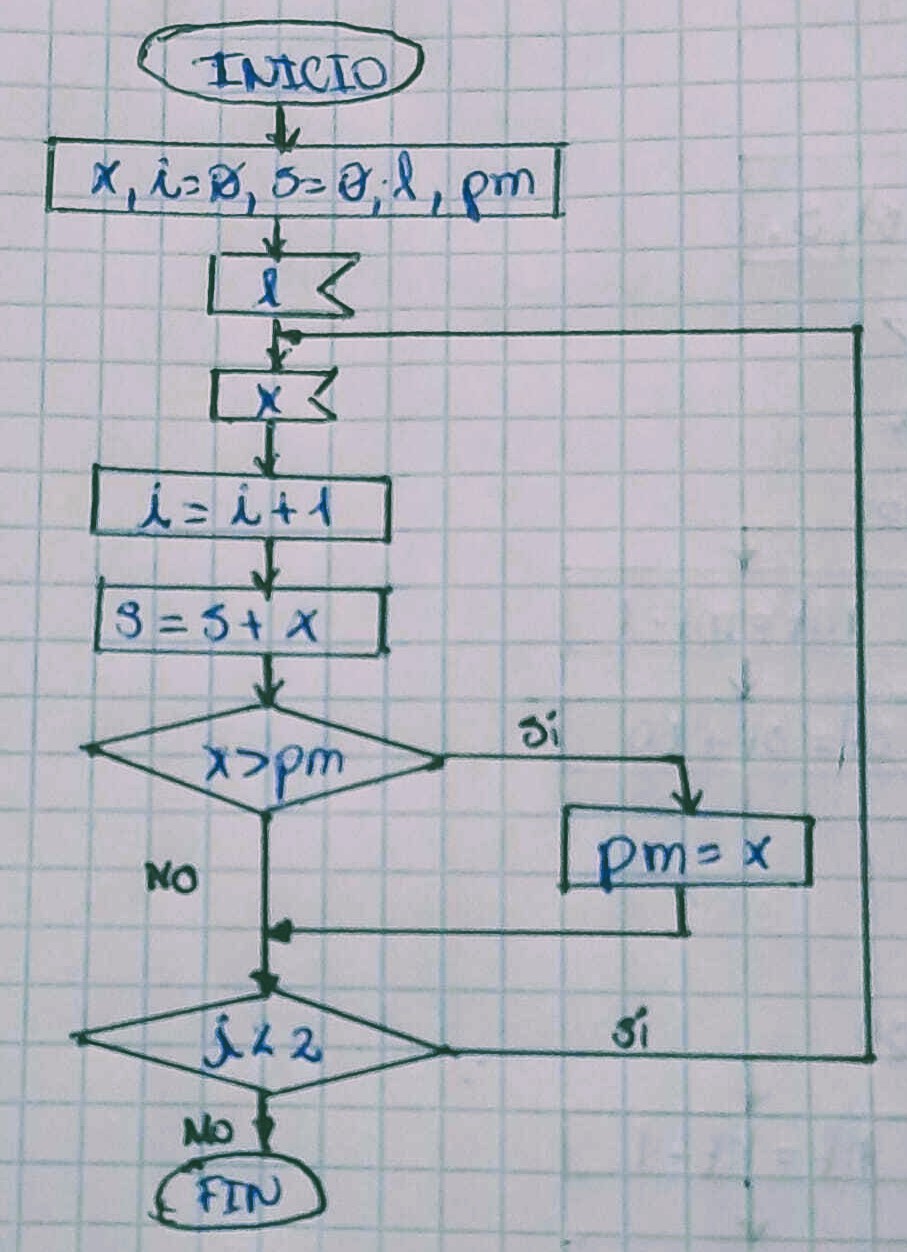 INICIO
x, i=0, s=0, l, pm
l
x
i = i + 1
s = s + x
x > pm
si
pm = x
NO
i < 2
si
NO
FIN